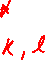 *
K, l